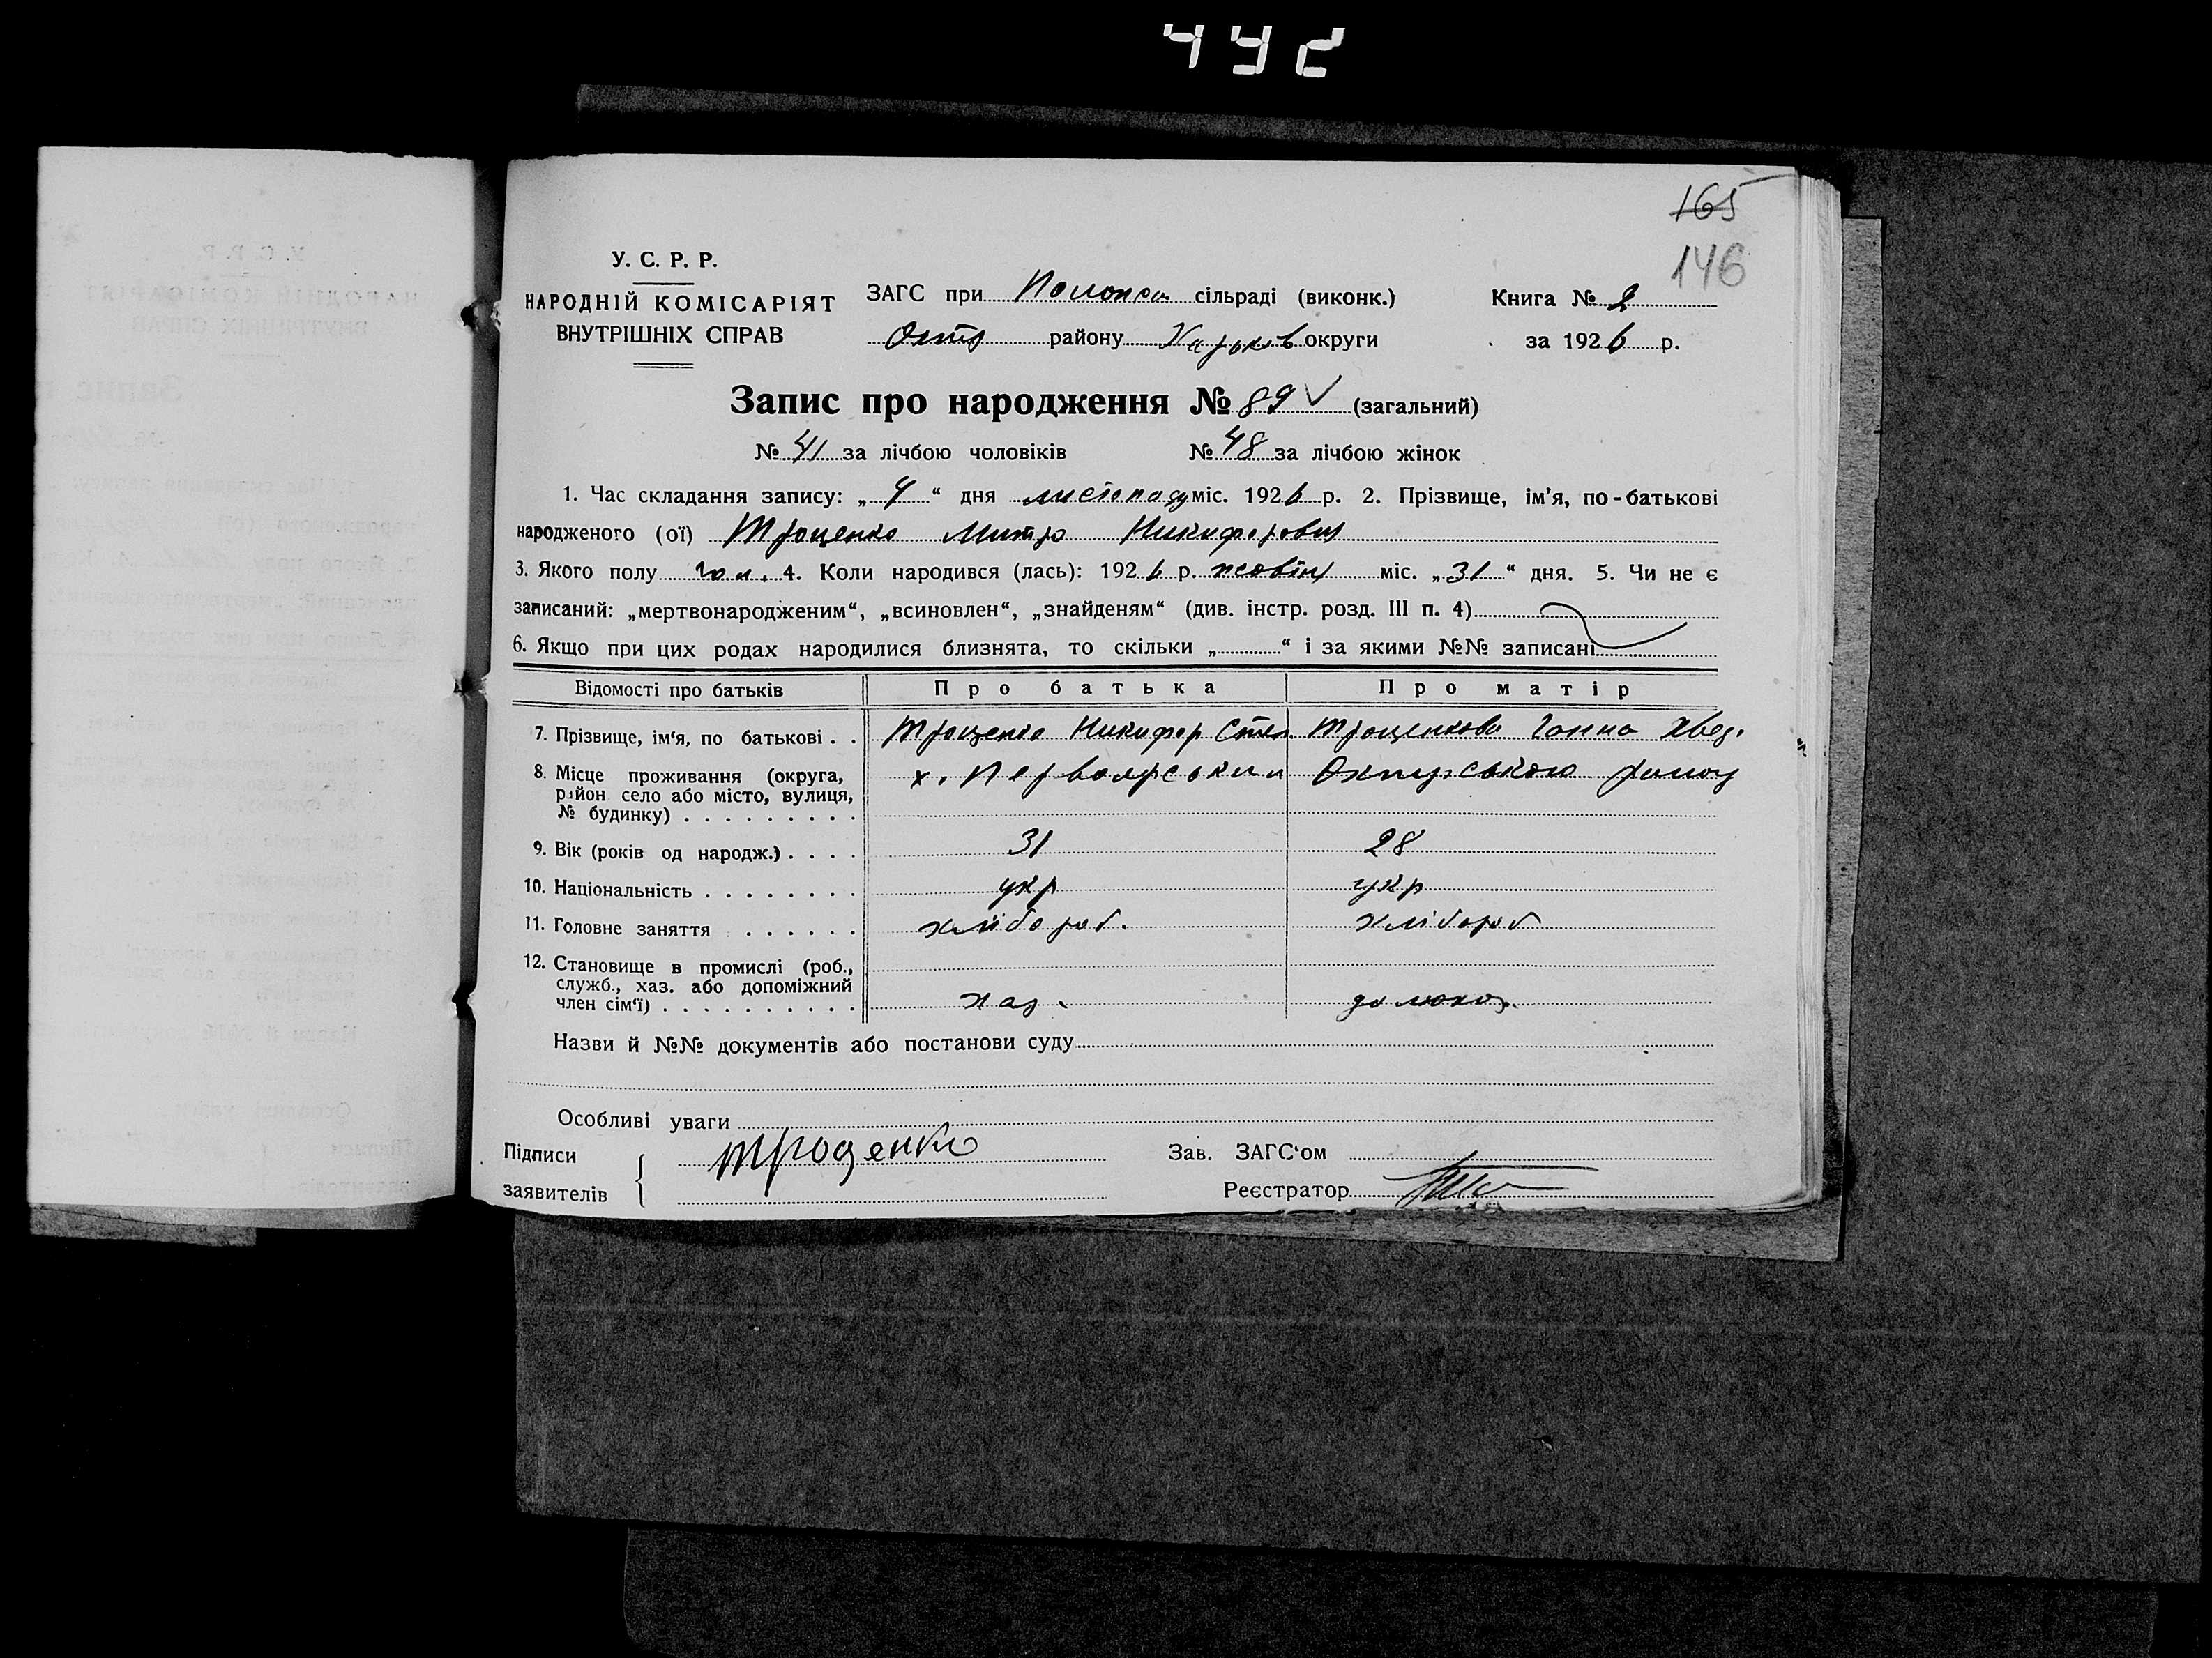 492
165
146
У. С. Р. Р.
НАРОДНІЙ КОМІСАРІЯТ
ВНУТРІШНІХ СПРАВ
ЗАГС при сільраді (виконк.)
Охт району Харьков округи
Книга № 2
за 1926 р.
Запис про народження № 89 (загальний)
№ 41 за лічбою чоловіків № 48 за лічбою жінок
1. Час складання запису: „4“ дня листопаду міс. 1926 р. 2. Прізвище, ім'я, по-батькові
народженого (ої) Троценко Митро Никифорович
3. Якого полу чол. 4. Коли народився (лась): 1926 р. жовтня міс. „31“ дня. 5. Чи не є
записаний: „мертвонародженим“, „всиновлен“, „знайденям“ (див. інстр. розд. III п. 4)
6. Якщо при цих родах народилися близнята, то скільки „ “ і за якими №№ записані
Відомості про батьків Про батька Про матір
7. Прізвище, ім'я, по батькові . . Троценко Никифор Степ. Троценкова Ганна Хвед.
8. Місце проживання (округа, х. Первоярський Охтирського району
район село або місто, вулиця,
№ будинку) . . . . . . . . .
9. Вік (років од народж.) . . . . 31 28
10. Національність . . . . . . . . укр укр
11. Головне заняття . . . . . . хлібороб. хлібороб
12. Становище в промислі (роб.,
служб., хаз. або допоміжний
член сім'ї) . . . . . . . . . . хаз.
Назви й №№ документів або постанови суду
Особливі уваги
Підписи Троценко Зав. ЗАГС'ом
заявителів Реєстратор